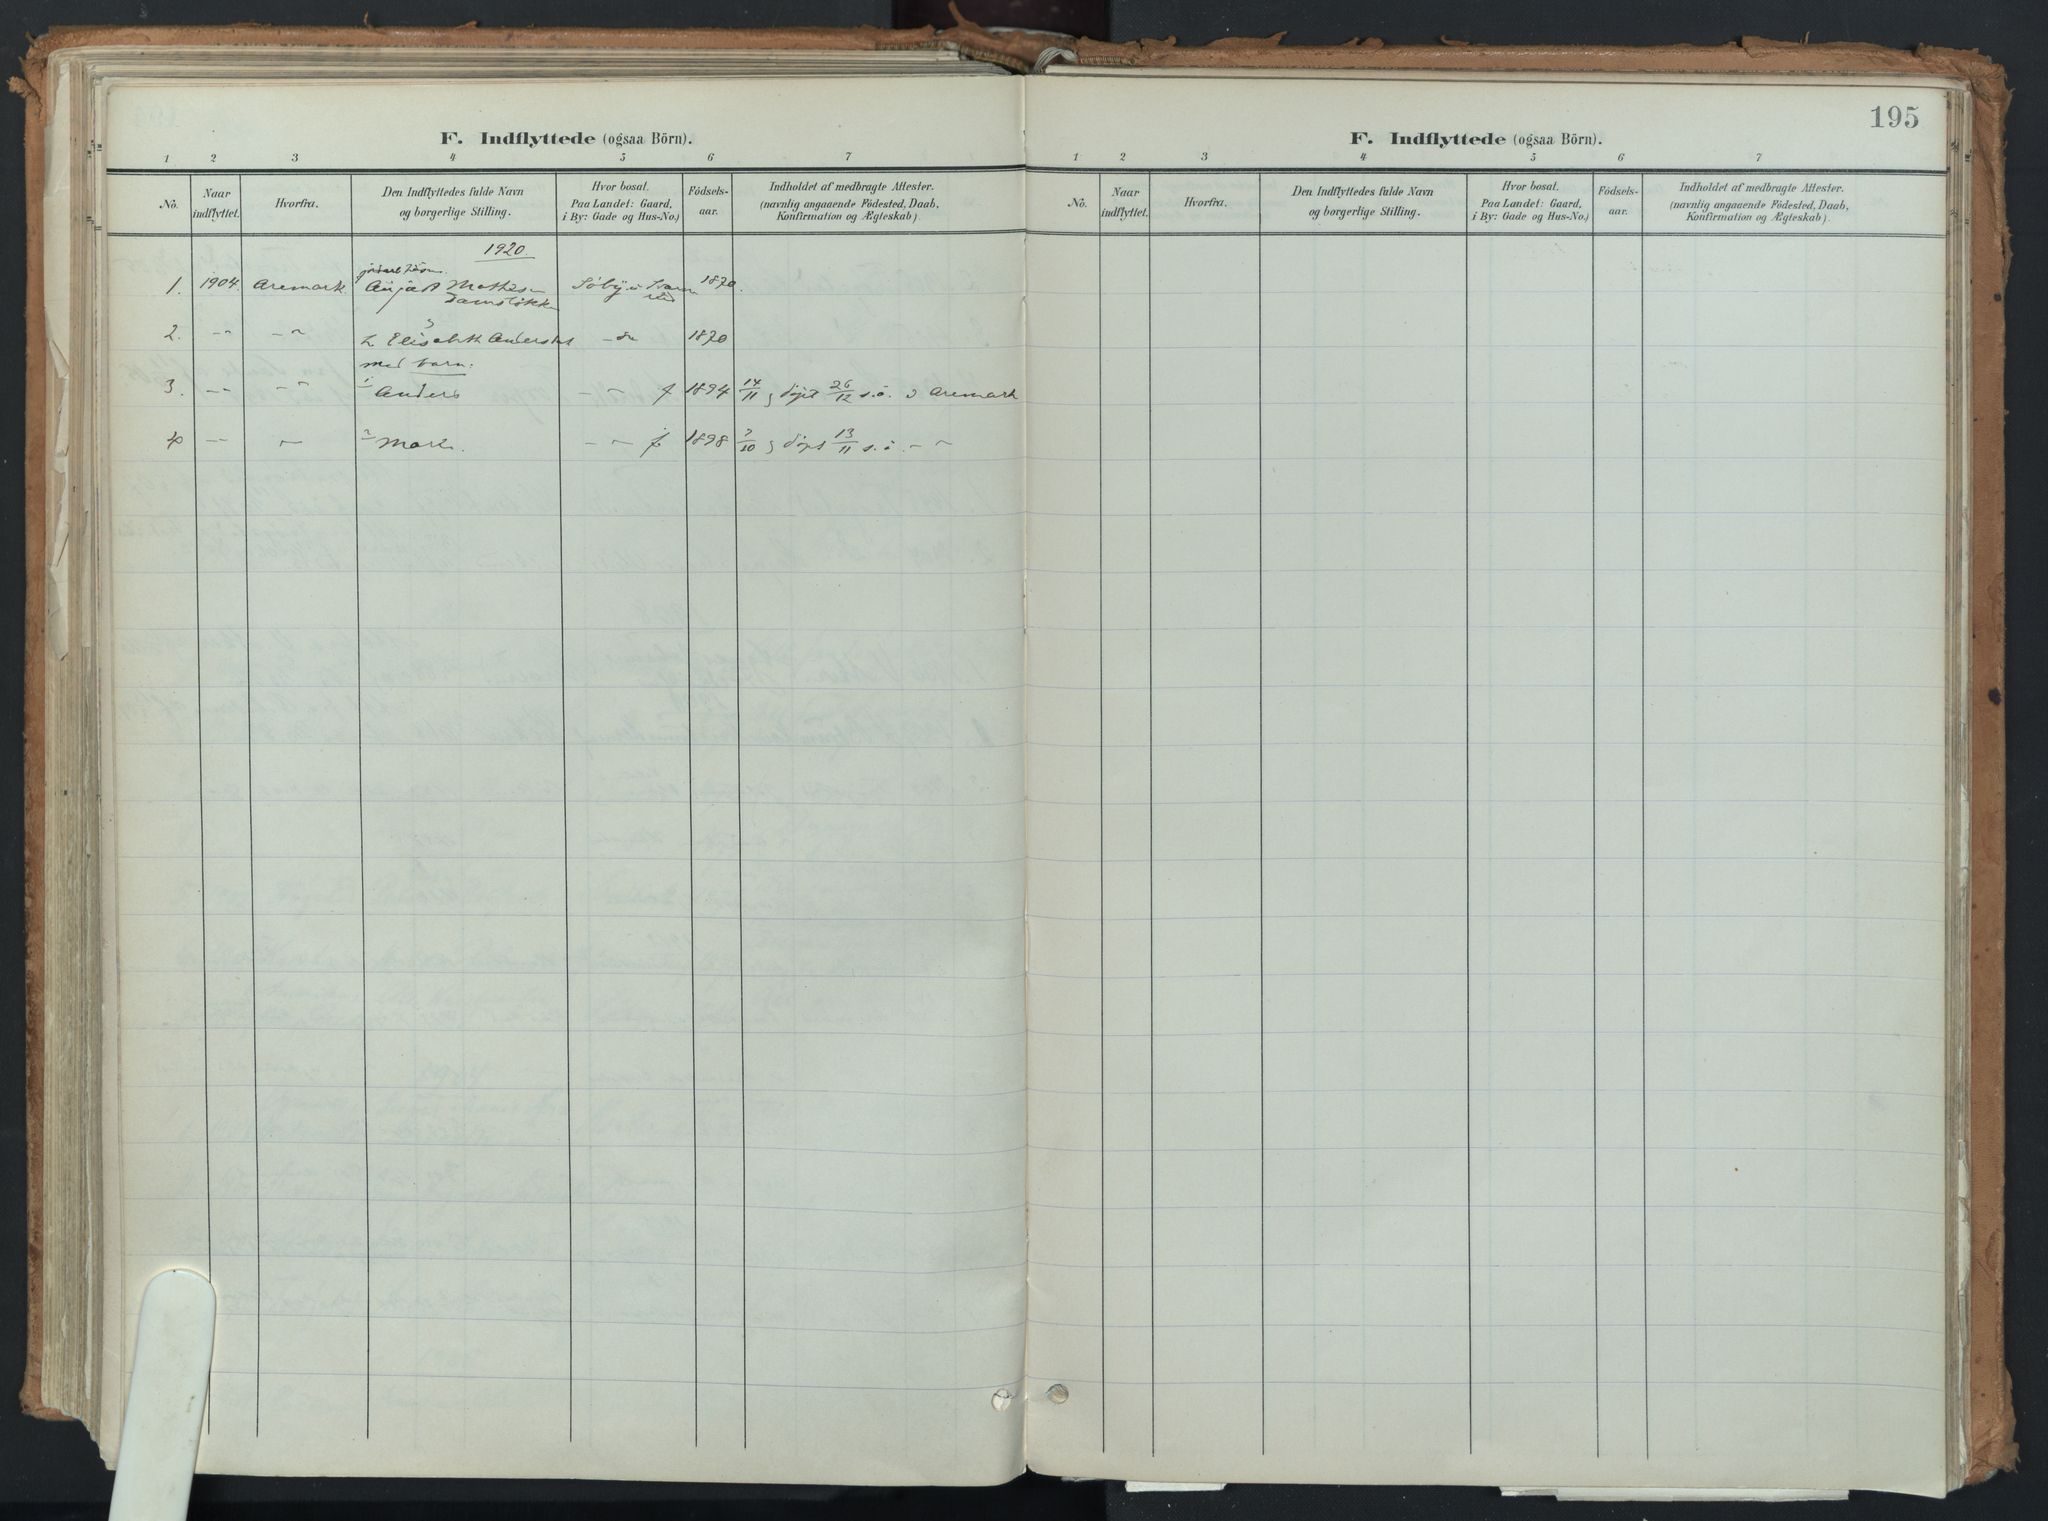 F. Indflyttede (ogsaa Börn).
1 2 3 4 5 6 7
No.
Naar indflyttet.
Hvorfra.
Den Indflyttedes fulde Navn
og borgerlige Stilling.
Hvor bosat.
Paa Landet: Gaard,
i By: Gade og Hus-No.)
Födsels-
aar.
Indholdet af medbragte Attester.
(navnlig angaaende Födested, Daab,
Konfirmation og Ægteskab).
1920.
1. 1904. Aremark Mathesen 1870.
2. -"- -"- Elisabeth Anders 1870
med barn:
3. -"- -"- Anders -"- f 1894 14/11 døpt 26/12 s.å. i Aremark
4 -"- -"- -"- f. 1898 døpt 13/11 s.å. -"-
195
F. Indflyttede (ogsaa Börn).
1 2 3 4 5 6 7
No.
Naar
indflyttet.
Hvorfra.
Den Indflyttedes fulde Navn
og borgerlige Stilling.
Hvor bosat.
Paa Landet: Gaard,
i By: Gade og Hus-No.)
Födsels-
aar.
Indholdet af medbragte Attester.
(navnlig angaaende Födested, Daab,
Konfirmation og Ægteskab).